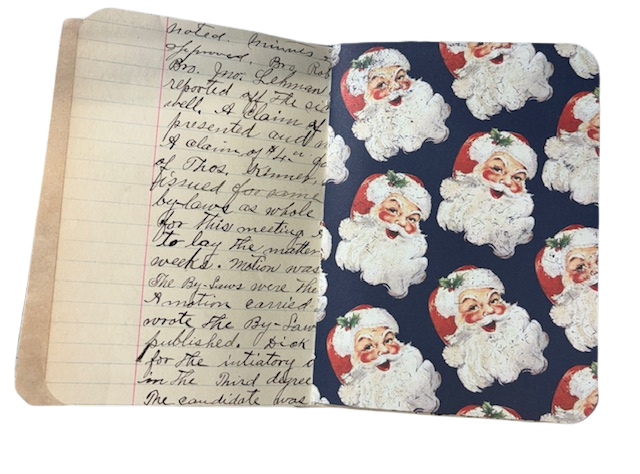 noted. Minnes
approved. Bro. Rob
Bro. Jno. Lehman
reported of The sic
well. A Claim of
presented and
A claim of $4.
of Thos.
issued for same
by-laws as whole
for This meeting
to lay The matter
weeks. Motion was
The By-Laws were The
A motion carried
wrote The By-Law
published. Dick
for The intiatory
in The Third degree
The candidate was